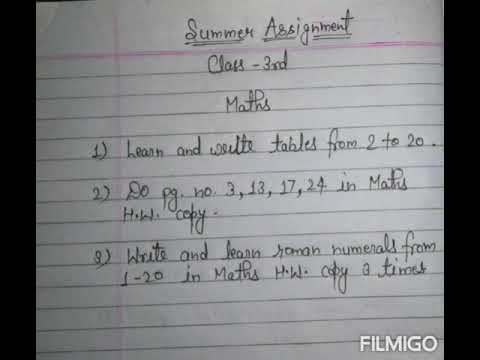 Summer Assignment
Class - 3rd
Maths
1) Learn and write tables from 2 to 20.
2) Do pg. no. 3, 13, 17, 24 in Maths
H.W. copy.
3) Write and learn roman numerals from
1-20 in Maths H.W. copy 3 times
FILMIGO